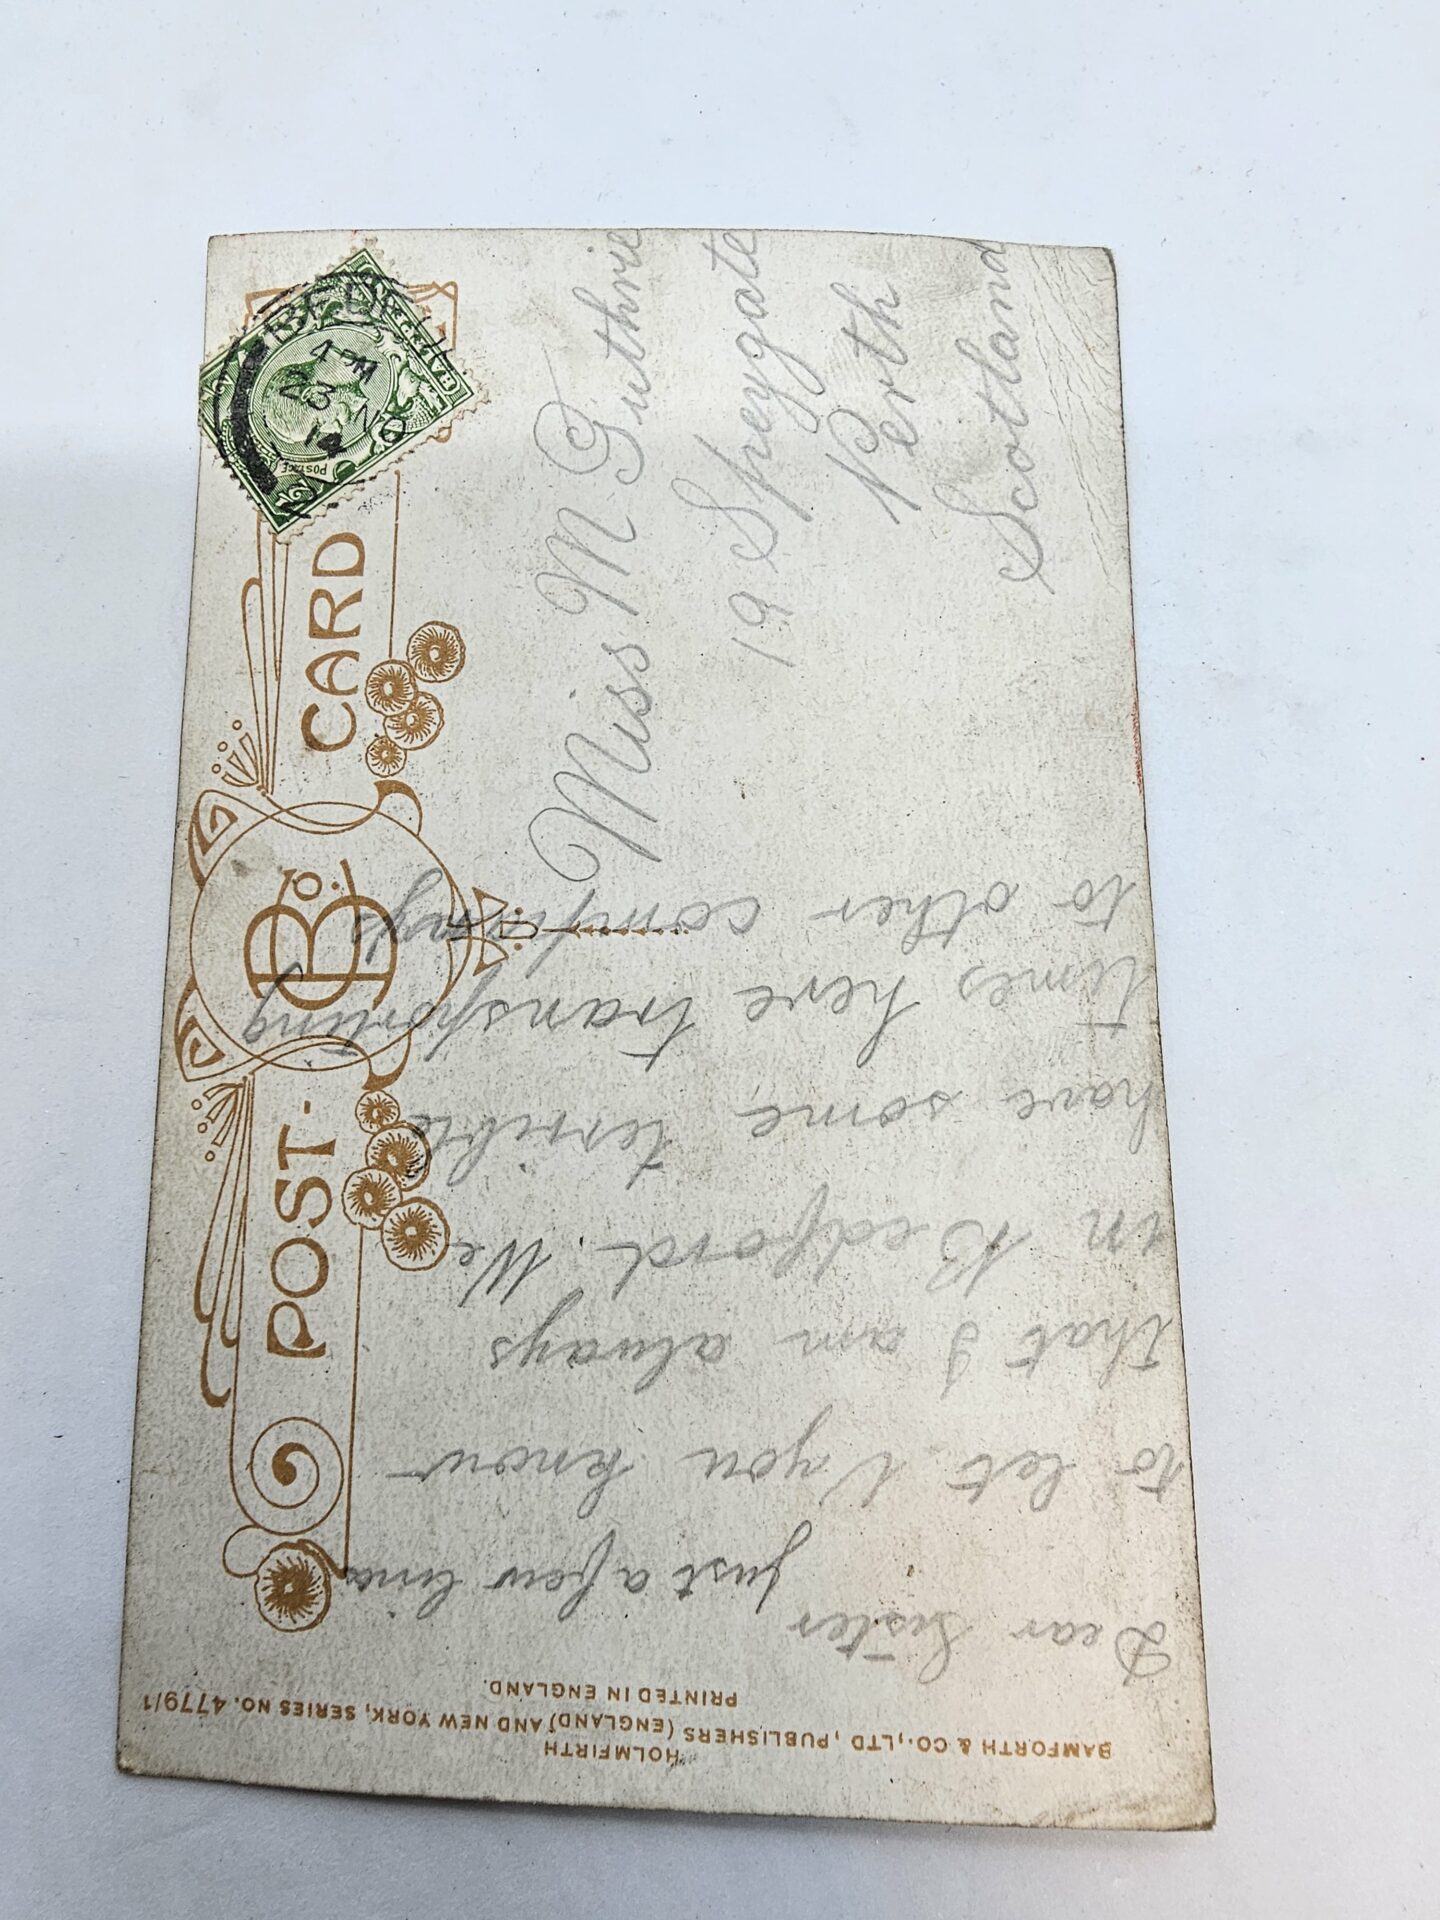 POST-CARD
B & Co.
BEDFORD
1 PM
23 NO
POSTAGE
Miss M Guthrie
19 Speygate
Perth
Scotland
Dear Sister just a few lines
to let you know
that I am always
in Bedford. We
have some terrible
times here transporting
to other companys
BAMFORTH & CO., LTD, PUBLISHERS (ENGLAND) AND NEW YORK, SERIES NO. 4779/1
HOLMFIRTH
PRINTED IN ENGLAND.